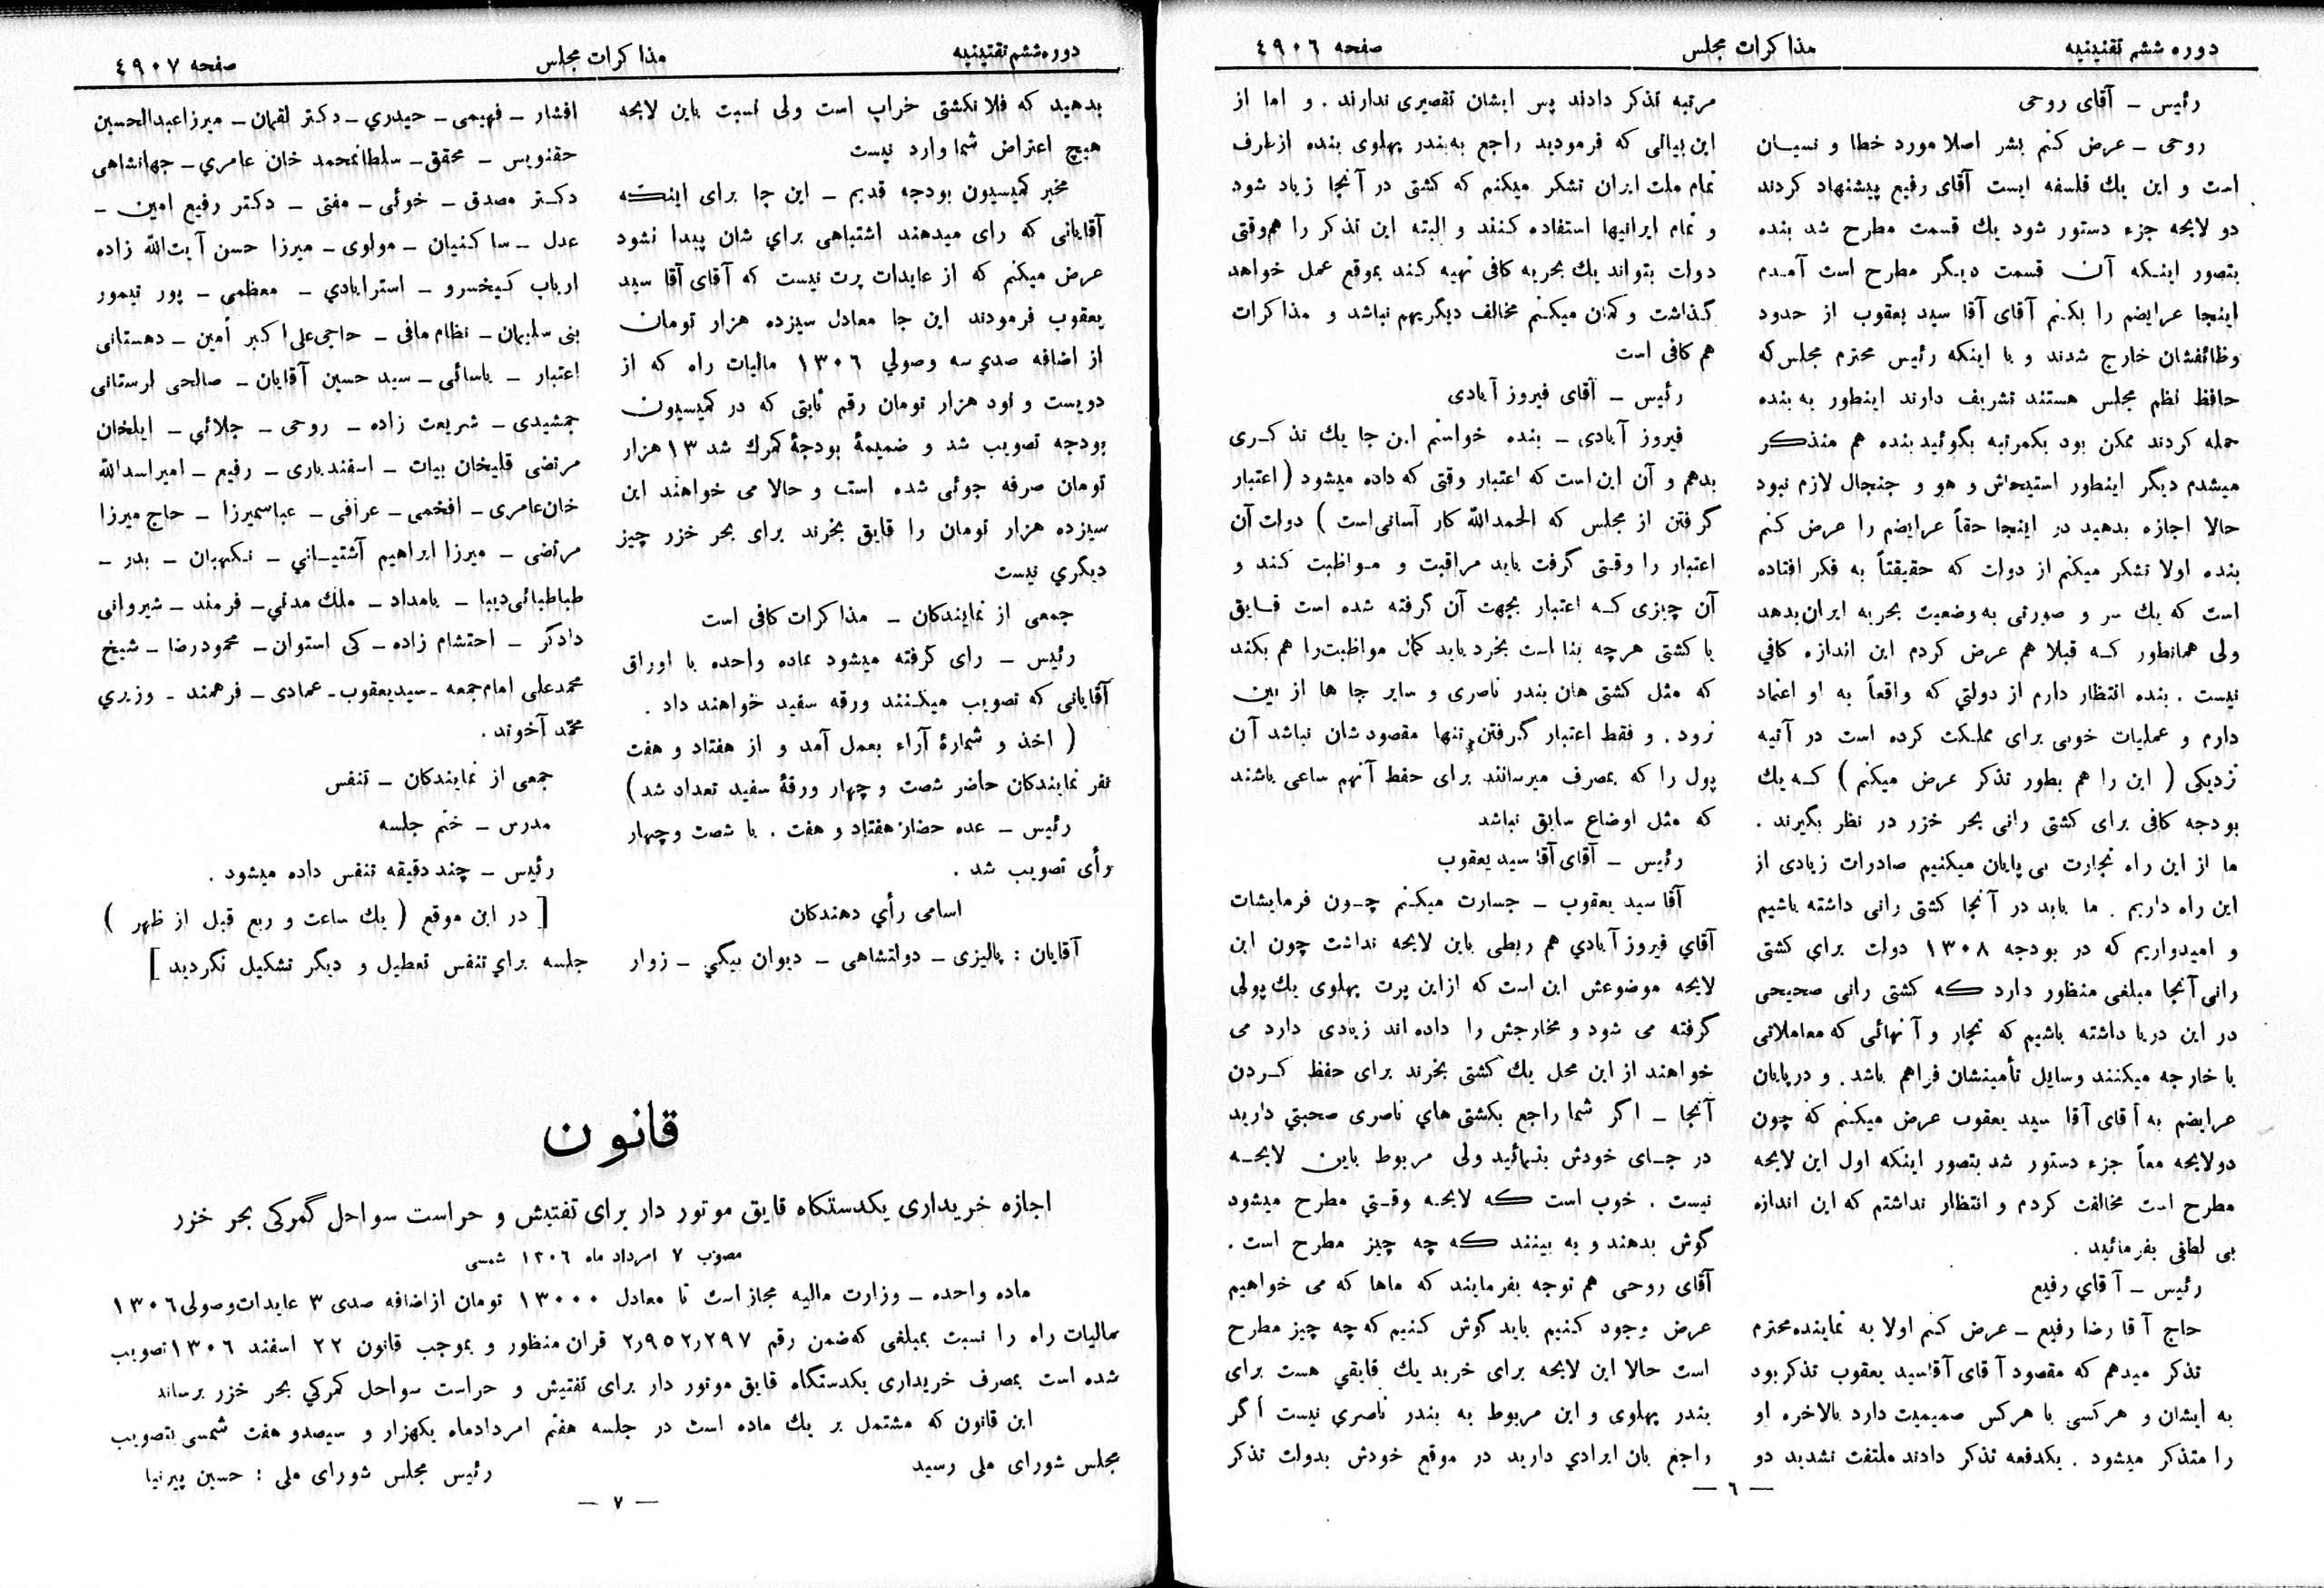 دوره ششم تقنینیه
مذاکرات مجلس
صفحه ٤٩٠٦
رئیس ـ آقای روحی
روحی ـ عرض کنم بشر اصلا مورد خطا و نسیان
است و این یك فلسفه ایست آقای رفیع پیشنهاد کردند
دو لایحه جزء دستور شود یك قسمت مطرح شد بنده
بتصور اینکه آن قسمت دیگر مطرح است آمدم
اینجا عرایضم را بکنم آقای آقا سید یعقوب از حدود
وظائفشان خارج شدند و با اینکه رئیس محترم مجلس که
حافظ نظم مجلس هستند تشریف دارند اینطور به بنده
حمله کردند ممکن بود یکمرتبه بگوئید بنده هم متذکر
میشدم دیگر اینطور استیحاش و هو و جنجال لازم نبود
حالا اجازه بدهید در اینجا حقاً عرایضم را عرض کنم
بنده اولا تشکر میکنم از دولت که حقیقتاً به فکر افتاده
است که یك سر و صورتی به وضعیت بحریه ایران بدهد
ولی همانطور که قبلا هم عرض کردم این اندازه کافي
نیست . بنده انتظار دارم از دولتي که واقعاً به او اعتماد
دارم و عملیات خوبی برای مملکت کرده است در آتیه
نزدیکی ( این را هم بطور تذکر عرض میکنم ) که یك
بودجه کافی برای کشتی رانی بحر خزر در نظر بگیرند .
ما از این راه تجارت بی پایان میکنیم صادرات زیادی از
این راه داریم . ما باید در آنجا کشتی رانی داشته باشیم
و امیدواریم که در بودجه ١٣٠٨ دولت برای کشتی
رانی آنجا مبلغی منظور دارد که کشتی رانی صحیحی
در این دریا داشته باشیم که تجار و آنهائی که معاملاتی
با خارجه میکنند وسایل تأمینشان فراهم باشد . و در پایان
عرایضم به آقای آقا سید یعقوب عرض میکنم که چون
دولایحه معاً جزء دستور شد بتصور اینکه اول این لایحه
مطرح است مخالفت کردم و انتظار نداشتم که این اندازه
بی لطفی بفرمائید .
رئیس ـ آقاي رفیع
حاج آقا رضا رفیع ـ عرض کنم اولا به نماینده محترم
تذکر میدهم که مقصود آقای آقاسید یعقوب تذکر بود
به ایشان و هرکسی با هرکس صمیمیت دارد بالاخره او
را متذکر میشود . یکدفعه تذکر دادند ملتفت نشدید دو
مرتبه تذکر دادند پس ایشان تقصیری ندارند . و اما از
این بیانی که فرمودید راجع به بندر پهلوی بنده از طرف
تمام ملت ایران تشکر میکنم که کشتی در آنجا زیاد شود
و تمام ایرانیها استفاده کنند و البته این تذکر را هم وقتی
دولت بتواند یك بحریه کافی تهیه کند بموقع عمل خواهد
گذاشت و گمان میکنم مخالف دیگر بهم نباشد و مذاکرات
هم کافی است
رئیس ـ آقای فیروز آبادی
فیروز آبادی ـ بنده خواستم این جا یك تذکری
بدهم و آن این است که اعتبار وقتی که داده میشود ( اعتبار
گرفتن از مجلس که الحمدالله کار آسانی است ) دولت آن
اعتبار را وقتی گرفت باید مراقبت و مواظبت کند و
آن چیزی که اعتبار بجهت آن گرفته شده است قایق
یا کشتی هرچه بنا است بخرد باید کمال مواظبت را هم بکند
که مثل کشتی هان بندر ناصری و سایر جا ها از بین
نرود . و فقط اعتبار گرفتن تنها مقصودشان نباشد آن
پول را که بمصرف میرسانند برای حفظ آنهم ساعی باشند
که مثل اوضاع سابق نباشد
رئیس ـ آقای آقا سید یعقوب
آقا سید یعقوب ـ جسارت میکنم چون فرمایشات
آقاي فیروز آبادي هم ربطی باین لایحه نداشت چون این
لایحه موضوعش این است که ازاین پرت پهلوی یك پولی
گرفته می شود و مخارجش را داده اند زیادی دارد می
خواهند از این محل یك کشتی بخرند برای حفظ کردن
آنجا ـ اگر شما راجع بکشتی هاي ناصری صحبتي دارید
در جای خودش بنمائید ولی مربوط باین لایحه
نیست . خوب است که لایحه وقتي مطرح میشود
گوش بدهند و به بینند که چه چیز مطرح است .
آقای روحی هم توجه بفرمایند که ماها که می خواهیم
عرض وجود کنیم باید گوش کنیم که چه چیز مطرح
است حالا این لایحه برای خرید یك قایقي هست برای
بندر پهلوی و این مربوط به بندر ناصري نیست اگر
راجع بان ایرادي دارید در موقع خودش بدولت تذکر
— ٦ —
دوره ششم تقنینیه
مذاکرات مجلس
صفحه ٤٩٠٧
بدهید که فلانکشتی خراب است ولی نسبت باین لایحه
هیچ اعتراض شما وارد نیست
مخبر کمیسیون بودجه قدیم ـ این جا برای اینکه
آقایانی که رای میدهند اشتباهی براي شان پیدا نشود
عرض میکنم که از عایدات پرت نیست که آقای آقا سید
یعقوب فرمودند این جا معادل سیزده هزار تومان
از اضافه صدي سه وصولي ١٣٠٦ مالیات راه که از
دویست و نود هزار تومان رقم ثابتی که در کمیسیون
بودجه تصویب شد و ضمیمهٔ بودجهٔ گمرك شد ١٣ هزار
تومان صرفه جوئی شده است و حالا می خواهند این
سیزده هزار تومان را قایق بخرند برای بحر خزر چیز
دیگري نیست
جمعی از نمایندگان ـ مذاکرات کافی است
رئیس ـ رای گرفته میشود بماده واحده با اوراق
آقایانی که تصویب میکنند ورقه سفید خواهند داد .
( اخذ و شمارهٔ آراء بعمل آمد و از هفتاد و هفت
نفر نمایندگان حاضر شصت و چهار ورقهٔ سفید تعداد شد )
رئیس ـ عده حضار هفتاد و هفت . با شصت و چهار
رأی تصویب شد .
اسامی رأي دهندگان
آقایان : پالیزی ـ دولتشاهی ـ دیوان بیگي ـ زوار
افشار ـ فهیمی ـ حیدري ـ دکتر لقمان ـ میرزاعبدالحسین
حقنویس ـ محقق ـ سلطانمحمد خان عامري ـ جهانشاهی
دکتر مصدق ـ خوئی ـ مفتی ـ دکتر رفیع امین ـ
عدل ـ ساکنیان ـ مولوی ـ میرزا حسن آیت‌الله زاده
ارباب کیخسرو ـ استرابادي ـ معظمي ـ پور تیمور
بنی سلیمان ـ نظام مافی ـ حاجی علی اکبر امین ـ دهستانی
اعتبار ـ یاسائی ـ سید حسین آقایان ـ صالحی لرستانی
جمشیدی ـ شریعت زاده ـ روحی ـ جلائي ـ ایلخان
مرتضی قلیخان بیات ـ اسفندیاری ـ رفیع ـ امیر اسدالله
خان عامری ـ افخمی ـ عراقی ـ عباسمیرزا ـ حاج میرزا
مرتضی ـ میرزا ابراهیم آشتیانی ـ نگهبان ـ بدر ـ
طباطبائی دیبا ـ بامداد ـ ملك مدني ـ فرمند ـ شیروانی
دادگر ـ احتشام زاده ـ کی استوان ـ محمودرضا ـ شیخ
محمدعلی امام جمعه ـ سیدیعقوب ـ عمادی ـ فرهمند ـ وزیري
محمد آخوند .
جمعی از نمایندگان ـ تنفس
مدرس ـ ختم جلسه
رئیس ـ چند دقیقه تنفس داده میشود .
[ در این موقع ( یك ساعت و ربع قبل از ظهر )
جلسه براي تنفس تعطیل و دیگر تشکیل نگردید ]
قانون
اجازه خریداری یکدستگاه قایق موتور دار برای تفتیش و حراست سواحل گمرکی بحر خزر
مصوب ٧ امرداد ماه ١٣٠٦ شمسی
ماده واحده ـ وزارت مالیه مجاز است تا معادل ١٣٠٠٠ تومان از اضافه صدی ٣ عایدات وصولی ١٣٠٦
مالیات راه را نسبت بمبلغی که ضمن رقم ٢٫٩٥٢٫٢٩٧ قران منظور و بموجب قانون ٢٢ اسفند ١٣٠٦ تصویب
شده است بمصرف خریداری یکدستگاه قایق موتور دار برای تفتیش و حراست سواحل گمرکي بحر خزر برساند
این قانون که مشتمل بر یك ماده است در جلسه هفتم امردادماه یکهزار و سیصدو هفت شمسی بتصویب
مجلس شورای ملی رسید
رئیس مجلس شورای ملی : حسین پیرنیا
— ٧ —